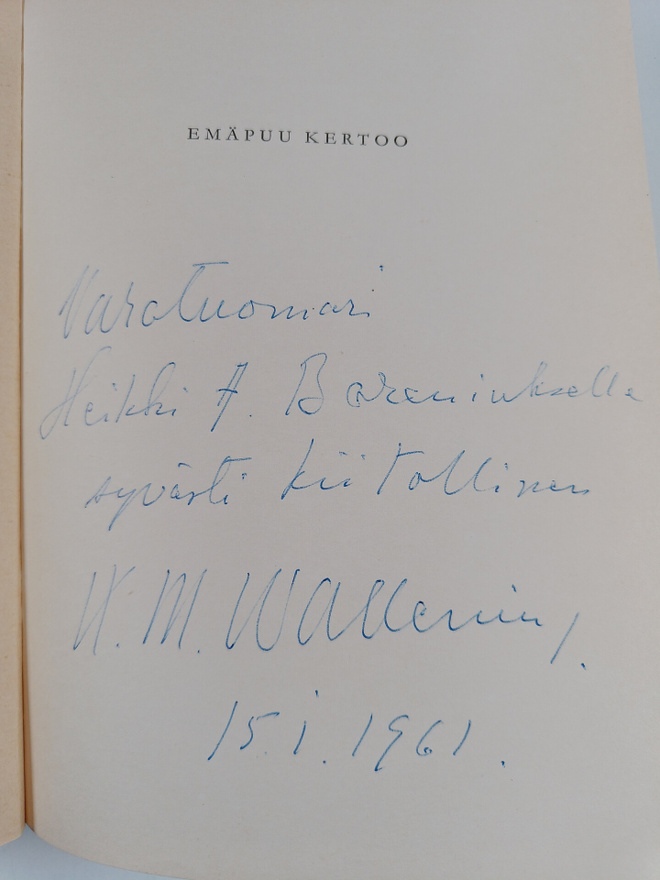 EMÄPUU KERTOO
Varatuomari
Heikki A. Bareniukselle
syvästi kiitollinen
K. M. Wallenius.
15.1.1961.